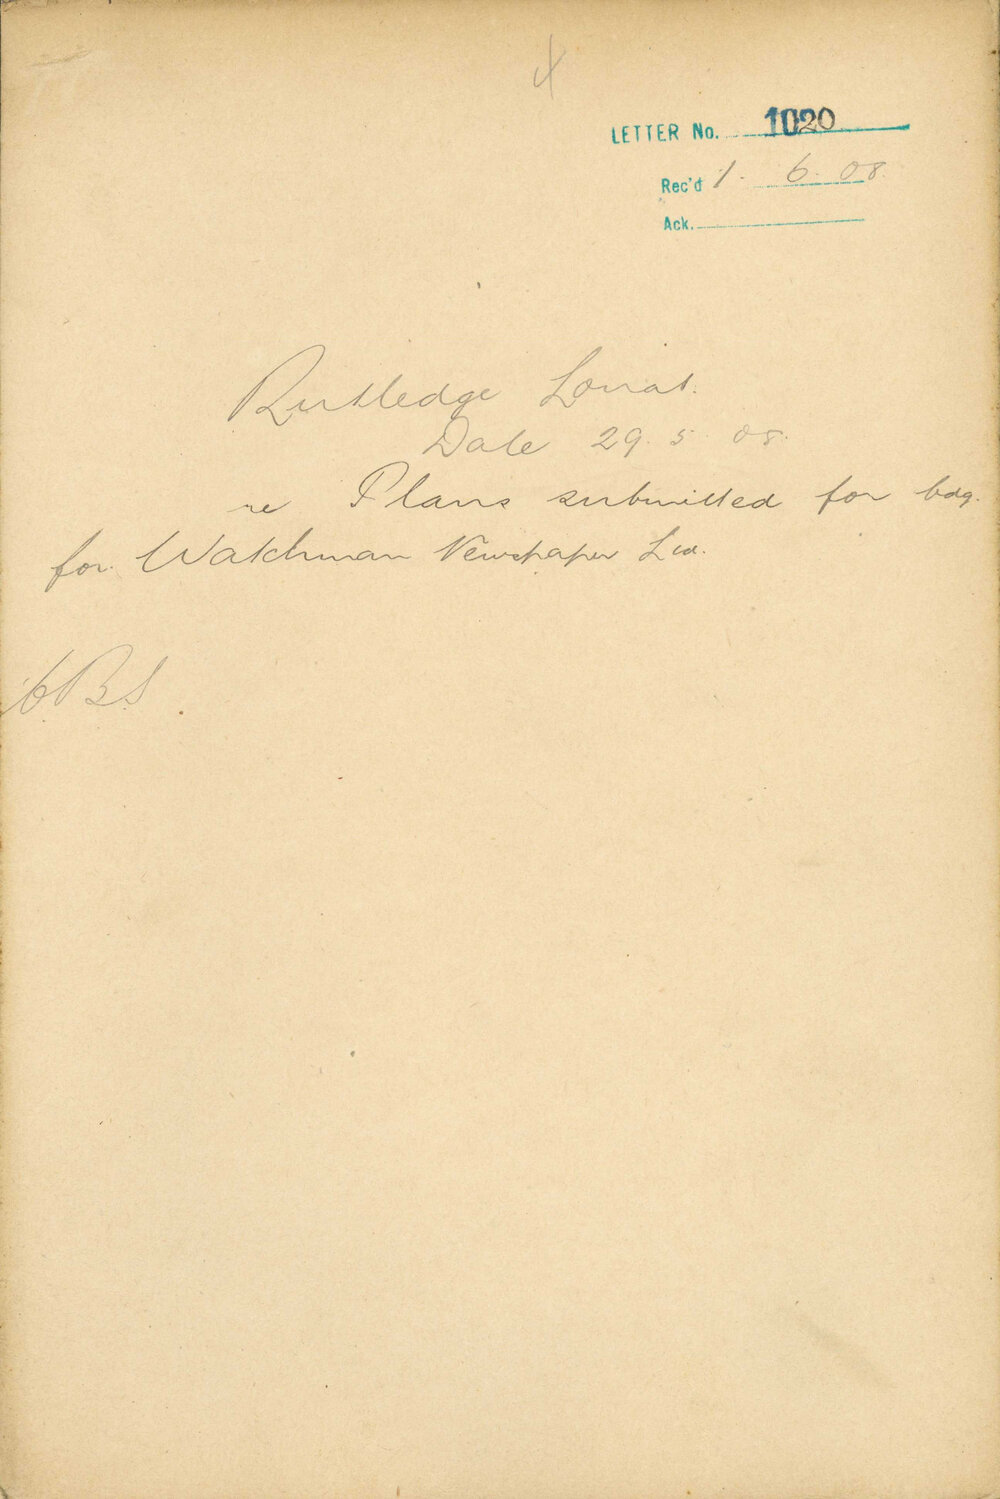 LETTER No. 1020
Rec'd 1. 6. 08.
Ack.
Rutledge Louat.
Date 29. 5. 08.
re Plans submitted for bdg.
for Watchman Newspaper Ltd.